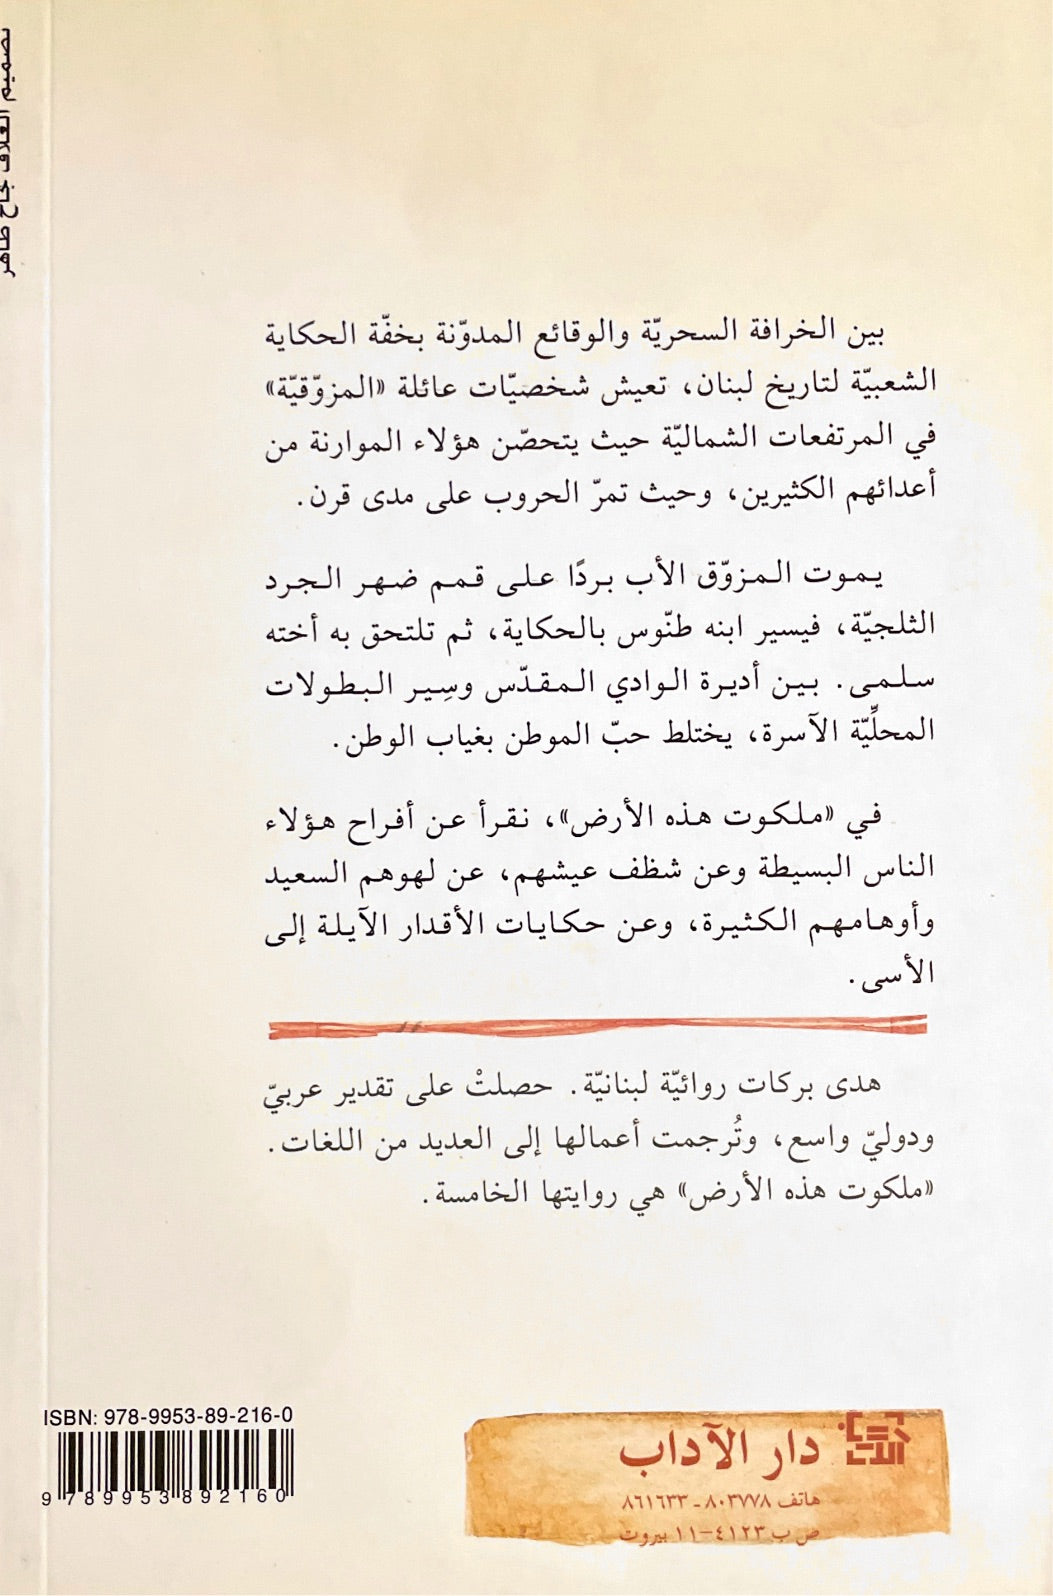 تصميم الغلاف نجاح طاهر
بين الخرافة السحريّة والوقائع المدوّنة بخفّة الحكاية
الشعبيّة لتاريخ لبنان، تعيش شخصيّات عائلة «المزوّقيّة»
في المرتفعات الشماليّة حيث يتحصّن هؤلاء الموارنة من
أعدائهم الكثيرين، وحيث تمرّ الحروب على مدى قرن.
يموت المزوّق الأب بردًا على قمم ضهر الجرد
الثلجيّة، فيسير ابنه طنّوس بالحكاية، ثم تلتحق به أخته
سلمى. بين أديرة الوادي المقدّس وسِير البطولات
المحلِّيّة الآسرة، يختلط حبّ الموطن بغياب الوطن.
في «ملكوت هذه الأرض»، نقرأ عن أفراح هؤلاء
الناس البسيطة وعن شظف عيشهم، عن لهوهم السعيد
وأوهامهم الكثيرة، وعن حكايات الأقدار الآيلة إلى
الأسى.
هدى بركات روائيّة لبنانيّة. حصلتْ على تقدير عربيّ
ودوليّ واسع، وتُرجمت أعمالها إلى العديد من اللغات.
«ملكوت هذه الأرض» هي روايتها الخامسة.
ISBN: 978-9953-89-216-0
9 789953 892160
دار الآداب
هاتف ٨٠٣٧٧٨ - ٨٦١٦٣٣
ص ب ٤١٢٣-١١ بيروت